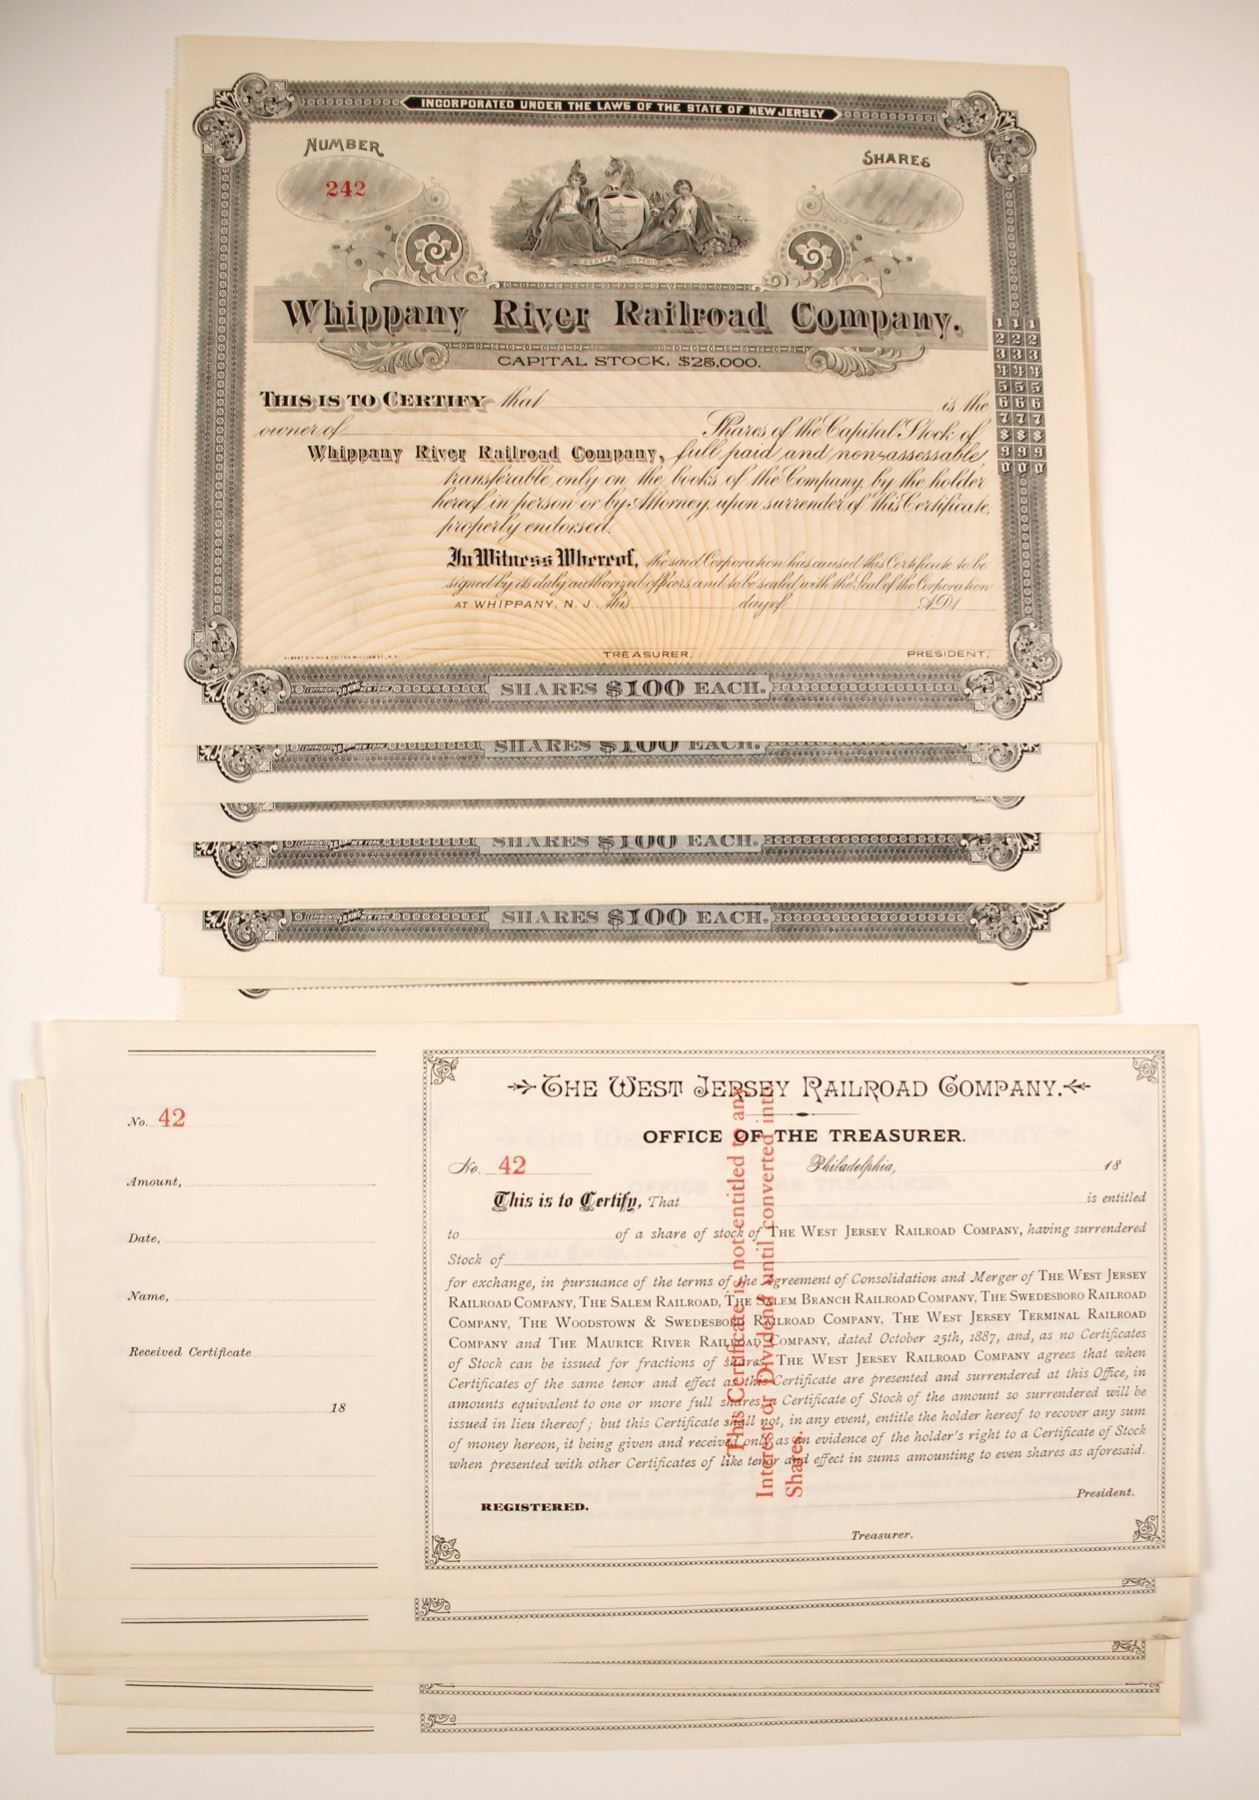 INCORPORATED UNDER THE LAWS OF THE STATE OF NEW JERSEY
NUMBER
SHARES
242
Whippany River Railroad Company.
CAPITAL STOCK, $25,000.
THIS IS TO CERTIFY that is the
owner of Shares of the Capital Stock of
Whippany River Railroad Company, full paid and non-assessable,
transferable only on the books of the Company, by the holder
hereof in person or by Attorney, upon surrender of this Certificate,
properly endorsed.
In Witness Whereof, the said Corporation has caused this Certificate to be
signed by its duly authorized officers and to be sealed with the Seal of the Corporation
AT WHIPPANY, N. J., this day of A.D. 1
TREASURER. PRESIDENT.
1 1 1
2 2 2
3 3 3
4 4 4
5 5 5
6 6 6
7 7 7
8 8 8
9 9 9
0 0 0
SHARES $100 EACH.
SHARES $100 EACH.
SHARES $100 EACH.
SHARES $100 EACH.
No. 42
Amount,
Date,
Name,
Received Certificate
18
THE WEST JERSEY RAILROAD COMPANY.
OFFICE OF THE TREASURER.
No. 42 Philadelphia, 18
This is to Certify, That is entitled
to of a share of stock of THE WEST JERSEY RAILROAD COMPANY, having surrendered
Stock of
for exchange, in pursuance of the terms of the Agreement of Consolidation and Merger of THE WEST JERSEY
RAILROAD COMPANY, THE SALEM RAILROAD, THE SALEM BRANCH RAILROAD COMPANY, THE SWEDESBORO RAILROAD
COMPANY, THE WOODSTOWN & SWEDESBORO RAILROAD COMPANY, THE WEST JERSEY TERMINAL RAILROAD
COMPANY and THE MAURICE RIVER RAILROAD COMPANY, dated October 25th, 1887, and, as no Certificates
of Stock can be issued for fractions of shares, THE WEST JERSEY RAILROAD COMPANY agrees that when
Certificates of the same tenor and effect as this Certificate are presented and surrendered at this Office, in
amounts equivalent to one or more full shares, a Certificate of Stock of the amount so surrendered will be
issued in lieu thereof; but this Certificate shall not, in any event, entitle the holder hereof to recover any sum
of money hereon, it being given and received only as an evidence of the holder's right to a Certificate of Stock
when presented with other Certificates of like tenor and effect in sums amounting to even shares as aforesaid.
REGISTERED.
President.
Treasurer.
This Certificate is not entitled to any
Interest or Dividend until converted into
Shares.